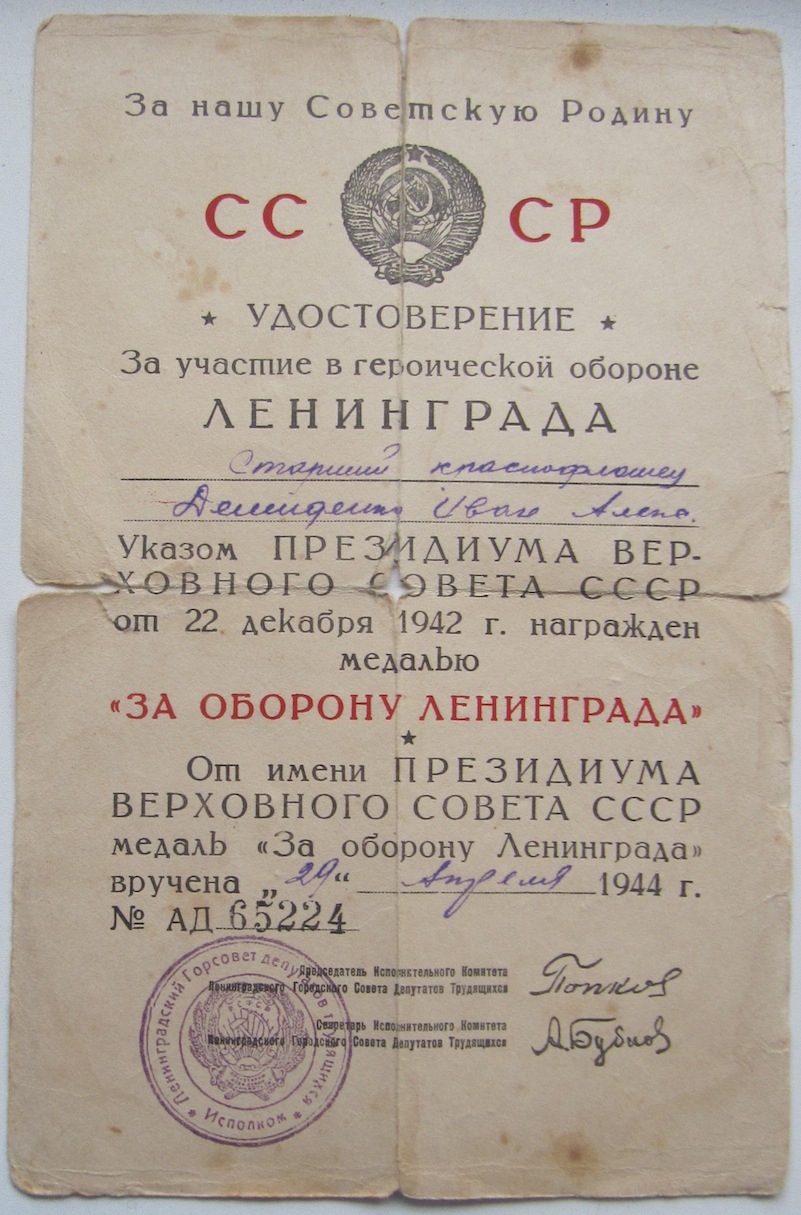 За нашу Советскую Родину
СССР
★ УДОСТОВЕРЕНИЕ ★
За участие в героической обороне
ЛЕНИНГРАДА
Старший краснофлотец
Демиденко Иван Алекс.
Указом ПРЕЗИДИУМА ВЕР-
ХОВНОГО СОВЕТА СССР
от 22 декабря 1942 г. награжден
медалью
«ЗА ОБОРОНУ ЛЕНИНГРАДА»
★
От имени ПРЕЗИДИУМА
ВЕРХОВНОГО СОВЕТА СССР
медаль «За оборону Ленинграда»
вручена „29“ Апреля 1944 г.
№ АД 65224
Председатель Исполнительного Комитета
Ленинградского Городского Совета Депутатов Трудящихся
Попков
Секретарь Исполнительного Комитета
Ленинградского Городского Совета Депутатов Трудящихся
А.Бубнов
Ленинградский Горсовет депутатов трудящихся
★ Исполком ★
РСФСР